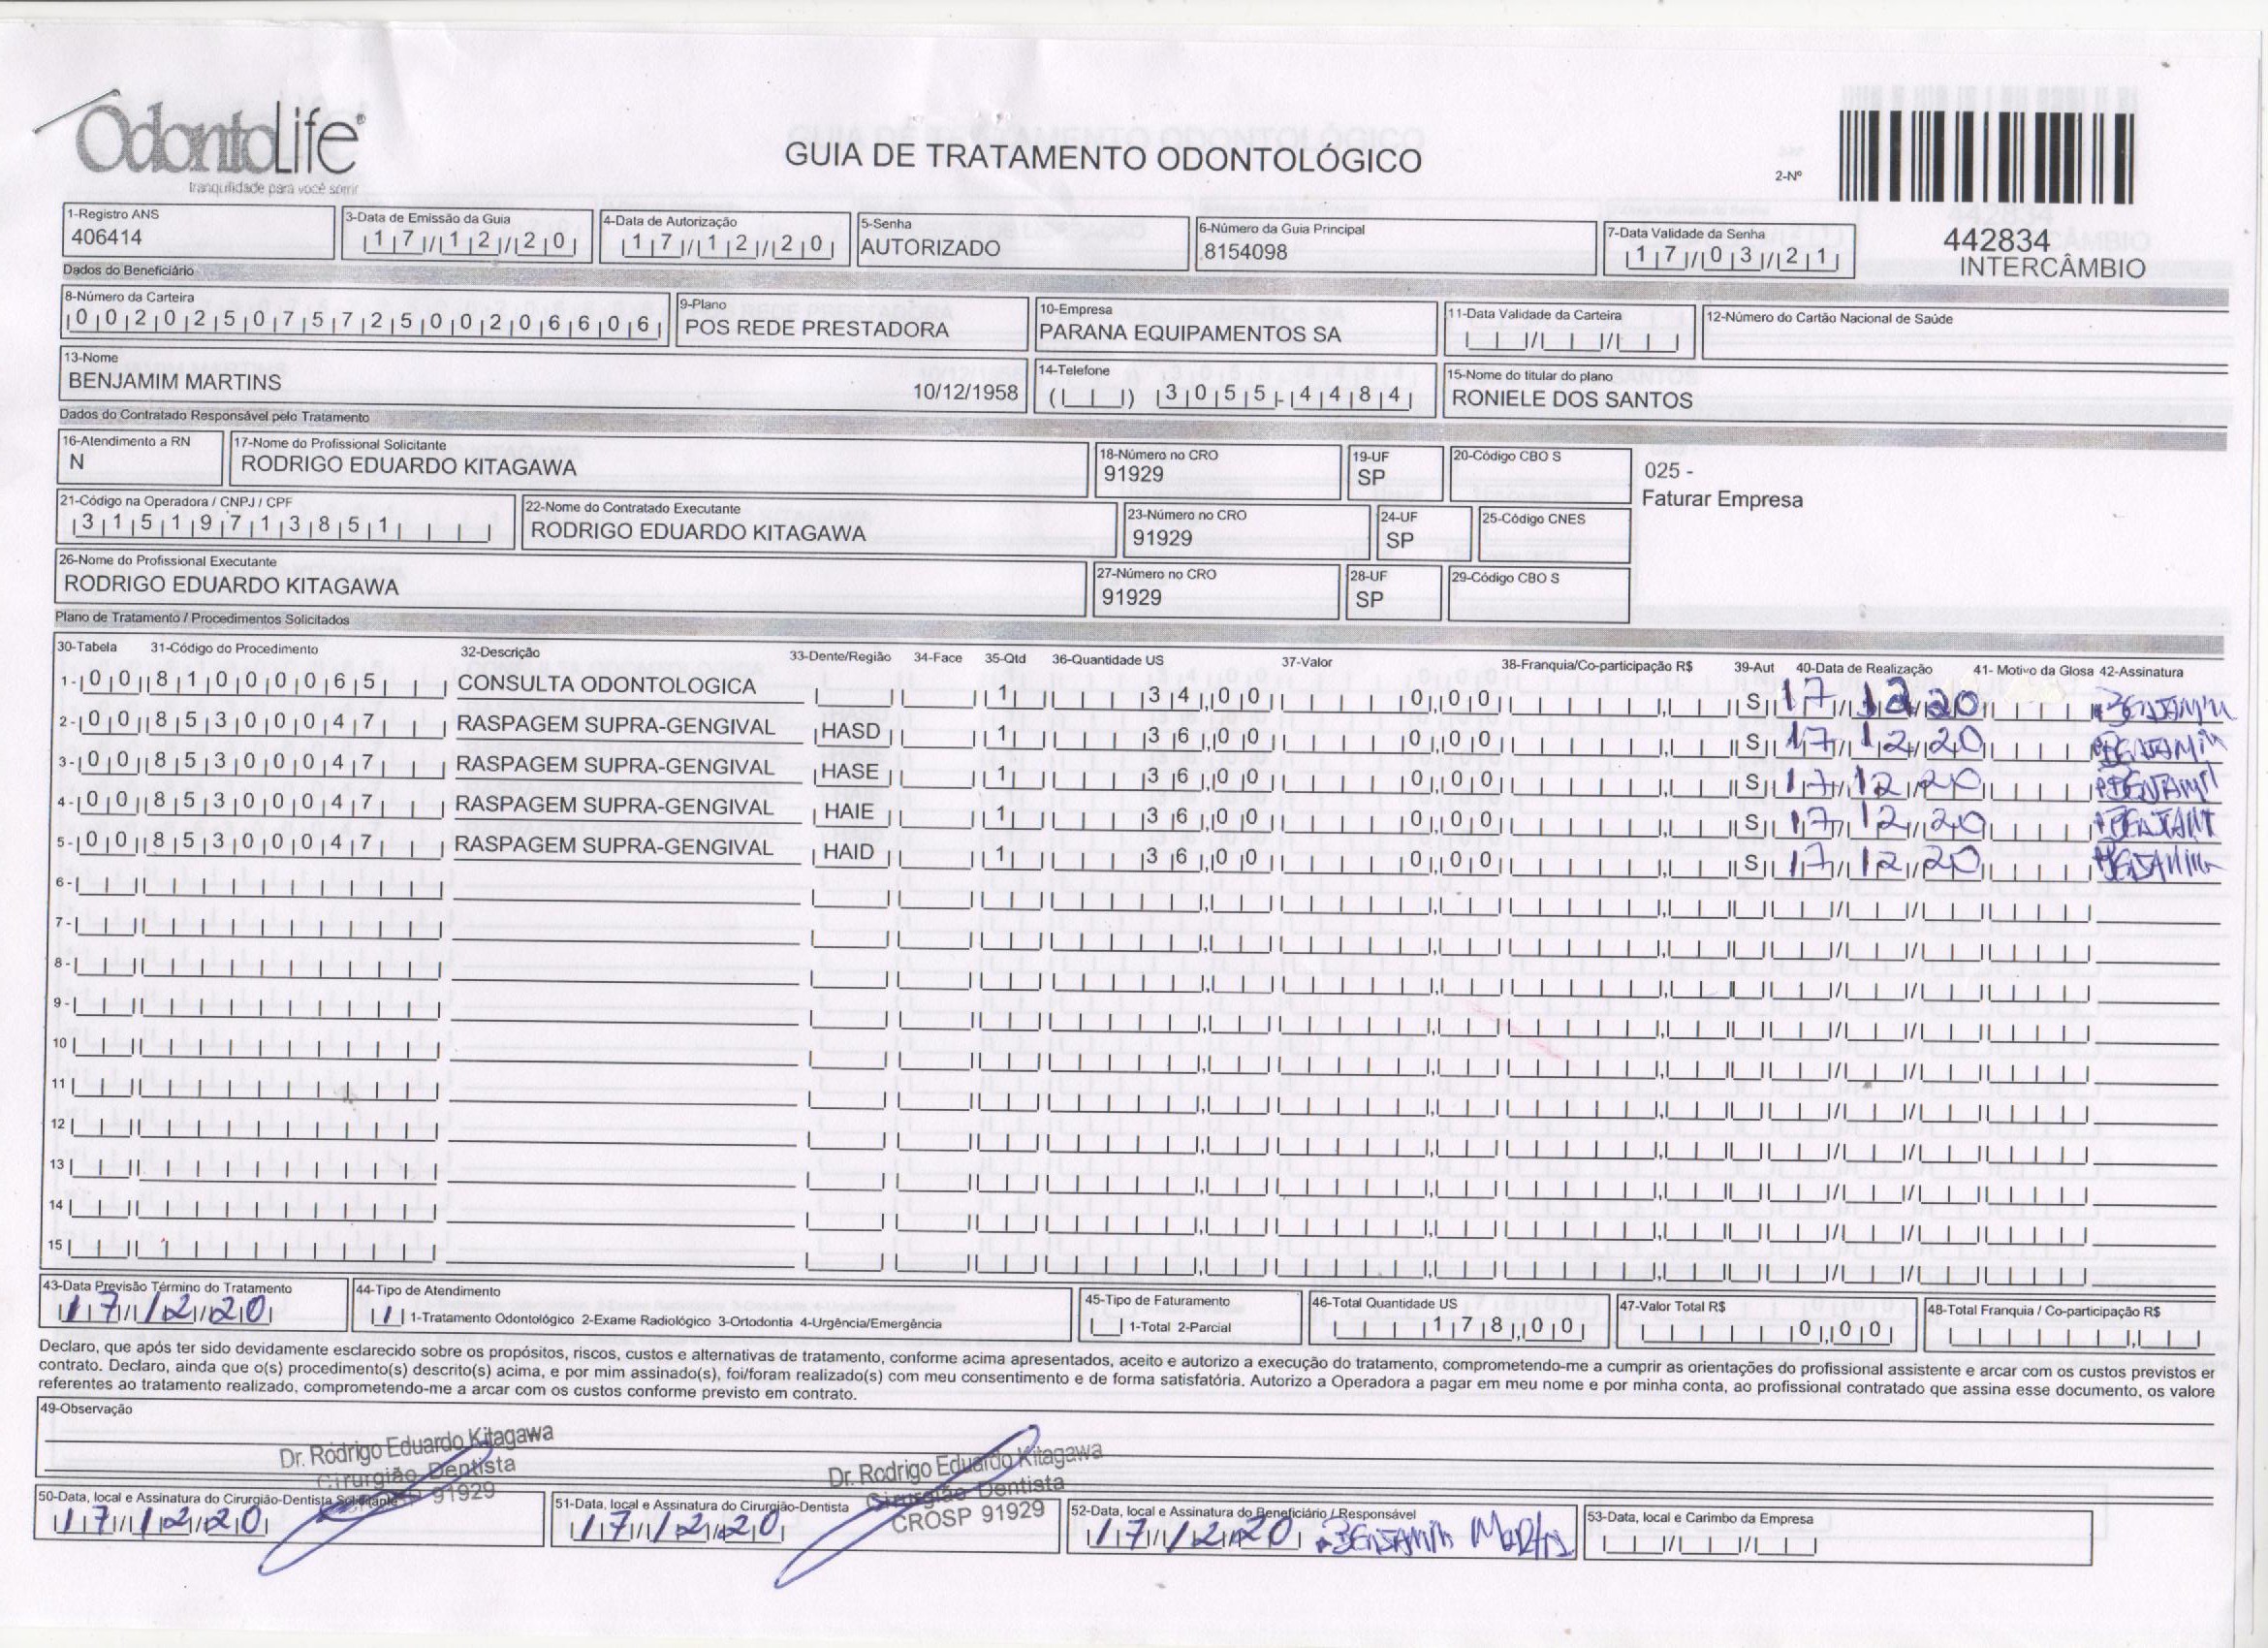 OdontoLife®
tranquilidade para você sorrir
GUIA DE TRATAMENTO ODONTOLÓGICO
2-Nº
442834
INTERCÂMBIO
1-Registro ANS
406414
3-Data de Emissão da Guia
17/12/20
4-Data de Autorização
17/12/20
5-Senha
AUTORIZADO
6-Número da Guia Principal
8154098
7-Data Validade da Senha
17/03/21
Dados do Beneficiário
8-Número da Carteira
00202507572500206606
9-Plano
POS REDE PRESTADORA
10-Empresa
PARANA EQUIPAMENTOS SA
11-Data Validade da Carteira
12-Número do Cartão Nacional de Saúde
13-Nome
BENJAMIM MARTINS 10/12/1958
14-Telefone
( ) 3055-4484
15-Nome do titular do plano
RONIELE DOS SANTOS
Dados do Contratado Responsável pelo Tratamento
16-Atendimento a RN
N
17-Nome do Profissional Solicitante
RODRIGO EDUARDO KITAGAWA
18-Número no CRO
91929
19-UF
SP
20-Código CBO S
025 -
Faturar Empresa
21-Código na Operadora / CNPJ / CPF
31519713851
22-Nome do Contratado Executante
RODRIGO EDUARDO KITAGAWA
23-Número no CRO
91929
24-UF
SP
25-Código CNES
26-Nome do Profissional Executante
RODRIGO EDUARDO KITAGAWA
27-Número no CRO
91929
28-UF
SP
29-Código CBO S
Plano de Tratamento / Procedimentos Solicitados
30-Tabela 31-Código do Procedimento 32-Descrição 33-Dente/Região 34-Face 35-Qtd 36-Quantidade US 37-Valor 38-Franquia/Co-participação R$ 39-Aut 40-Data de Realização 41- Motivo da Glosa 42-Assinatura
1- 00 81000065 CONSULTA ODONTOLOGICA 1 34,00 0,00 S 17/12/20
2- 00 85300047 RASPAGEM SUPRA-GENGIVAL HASD 1 36,00 0,00 S 17/12/20 BENJAMIN
3- 00 85300047 RASPAGEM SUPRA-GENGIVAL HASE 1 36,00 0,00 S 17/12/20
4- 00 85300047 RASPAGEM SUPRA-GENGIVAL HAIE 1 36,00 0,00 S 17/12/20
5- 00 85300047 RASPAGEM SUPRA-GENGIVAL HAID 1 36,00 0,00 S 17/12/20
6-
7-
8-
9-
10
11
12
13
14
15
43-Data Previsão Término do Tratamento
17/12/20
44-Tipo de Atendimento
1 1-Tratamento Odontológico 2-Exame Radiológico 3-Ortodontia 4-Urgência/Emergência
45-Tipo de Faturamento
1-Total 2-Parcial
46-Total Quantidade US
178,00
47-Valor Total R$
0,00
48-Total Franquia / Co-participação R$
Declaro, que após ter sido devidamente esclarecido sobre os propósitos, riscos, custos e alternativas de tratamento, conforme acima apresentados, aceito e autorizo a execução do tratamento, comprometendo-me a cumprir as orientações do profissional assistente e arcar com os custos previstos er
contrato. Declaro, ainda que o(s) procedimento(s) descrito(s) acima, e por mim assinado(s), foi/foram realizado(s) com meu consentimento e de forma satisfatória. Autorizo a Operadora a pagar em meu nome e por minha conta, ao profissional contratado que assina esse documento, os valore
referentes ao tratamento realizado, comprometendo-me a arcar com os custos conforme previsto em contrato.
49-Observação
Dr. Rodrigo Eduardo Kitagawa
Cirurgião Dentista
91929
Dr. Rodrigo Eduardo Kitagawa
Cirurgião Dentista
CROSP 91929
50-Data, local e Assinatura do Cirurgião-Dentista Solicitante
17/12/20
51-Data, local e Assinatura do Cirurgião-Dentista
17/12/20
52-Data, local e Assinatura do Beneficiário / Responsável
17/12/20 BENJAMIN Martins
53-Data, local e Carimbo da Empresa